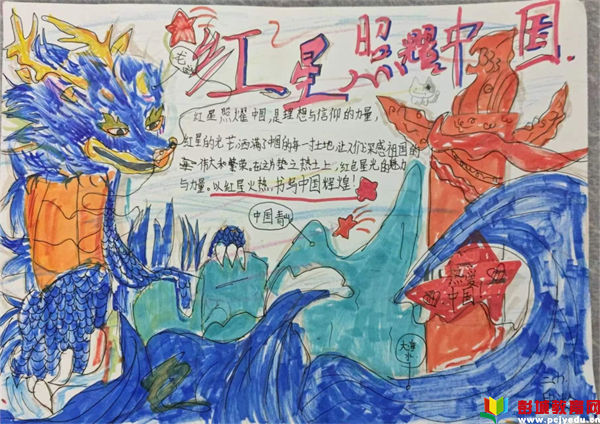 红星照耀中国
龙
红星照耀中国,是理想与信仰的力量,
红星的光芒洒满了中国的每一寸土地,让人们深感祖国的
每一伟大和繁荣。在这片热土上,红色星光的魅力
与力量。以红星火热,书写中国辉煌!
中国青山
热爱
中国
大海
水
彭城教育网
www.pcjyedu.cn